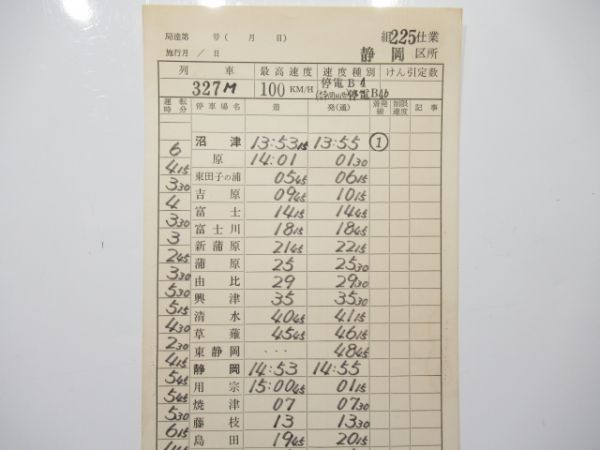 局達第 号( 月 日) 組225仕業
施行月 / 日 静岡区所
列車 最高速度 速度種別 けん引定数
327M 100KM/H 停電B4
停電B4b
運転時分 停車場名 着 発(通) 着発線 制限速度 記事
沼津 13:5315 13:55 ①
6 原 14:01 0130
415 東田子の浦 0545 0615
330 吉原 0945 1015
4 富士 1415 1445
330 富士川 1815 1845
3 新蒲原 2145 2215
245 蒲原 25 2530
330 由比 29 2930
530 興津 35 3530
515 清水 4045 4115
430 草薙 4545 4615
230 東静岡 ... 4845
415 静岡 14:53 14:55
545 用宗 15:0045 0115
545 焼津 07 0730
530 藤枝 13 1330
615 島田 1945 2015